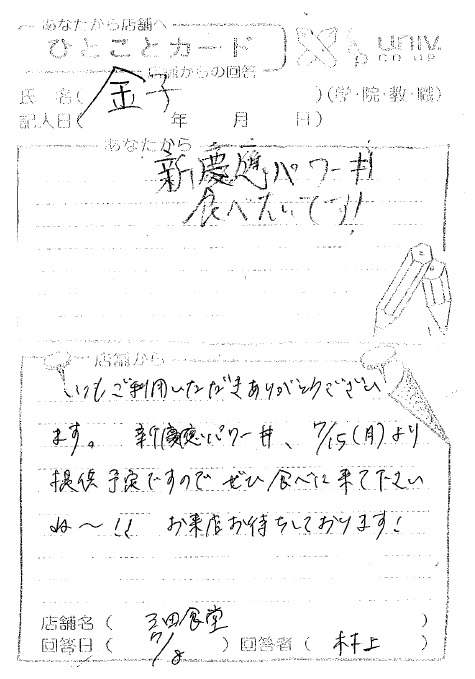 あなたから店舗へ
ひとことカード
店舗からの回答
univ.
CO-OP
氏 名( 金子 )(学・院・教・職)
記入日( 年 月 日)
あなたから
新慶應パワー丼
食べたいです!!
店舗から
いつもご利用いただきありがとうござい
ます。 新慶應パワー丼、7/15(月)より
提供予定ですので ぜひ食べに来て下さい
ね〜!! お来店お待ちしております!
店舗名( 三田食堂 )
回答日( 7/8 )回答者( 村上 )